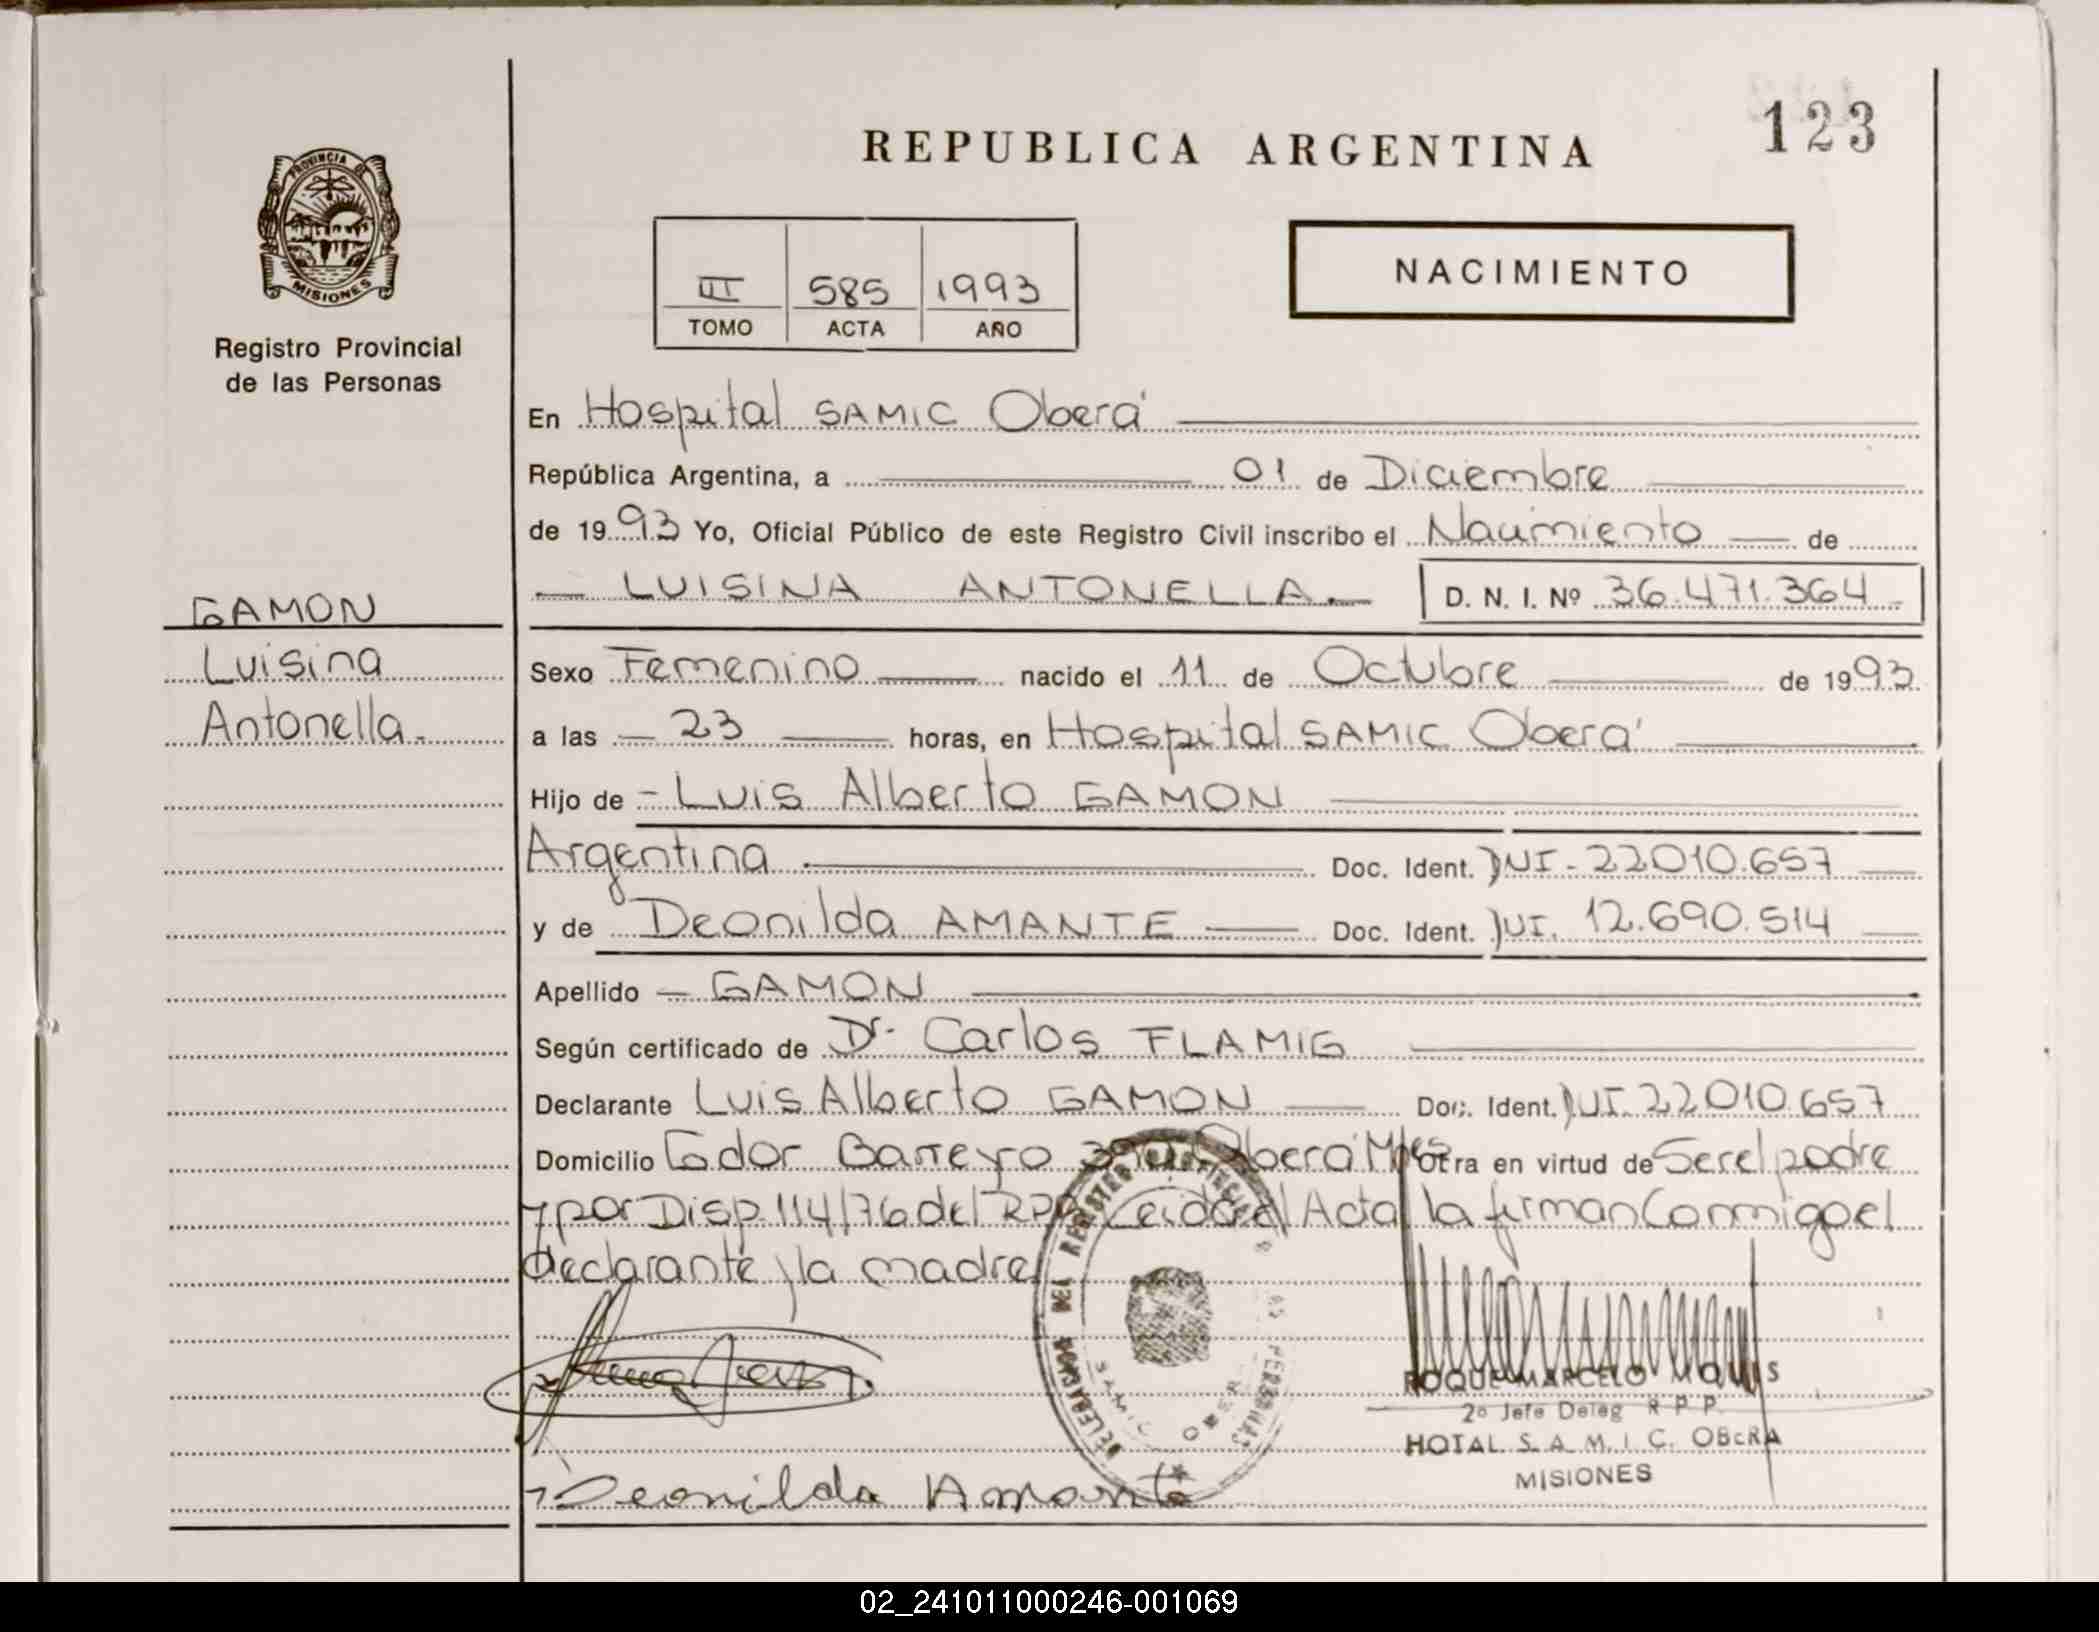 123
REPUBLICA ARGENTINA
PROVINCIA DE
MISIONES
Registro Provincial
de las Personas
III 585 1993
TOMO ACTA AÑO
NACIMIENTO
En Hospital SAMIC Oberá
República Argentina, a 01 de Diciembre
de 1993 Yo, Oficial Público de este Registro Civil inscribo el Nacimiento de
LUISINA ANTONELLA.- D. N. I. Nº 36.471.364
GAMON
Luisina
Antonella.-
Sexo Femenino nacido el 11 de Octubre de 1993
a las 23 horas, en Hospital SAMIC Oberá
Hijo de - Luis Alberto GAMON
Argentina Doc. Ident. DNI - 22010.657
y de Deonilda AMANTE Doc. Ident. DNI. 12.690.514
Apellido - GAMON
Según certificado de Dr. Carlos FLAMIG
Declarante Luis Alberto GAMON Doc. Ident. DNI. 22010.657
Domicilio Gdor Barreyro Oberá Mnes Obra en virtud de Ser el padre
y por Disp. 114/76 del RPP Leída el Acta la firman Conmigo el
declarante y la madre
DELEGACION DEL REGISTRO PROVINCIAL DE LAS PERSONAS
SAMIC OBERA
ROQUE MARCELO
2º Jefe Deleg R P P
HOTAL S. A. M. I. C. OBERA
MISIONES
Deonilda Amante
02_241011000246-001069